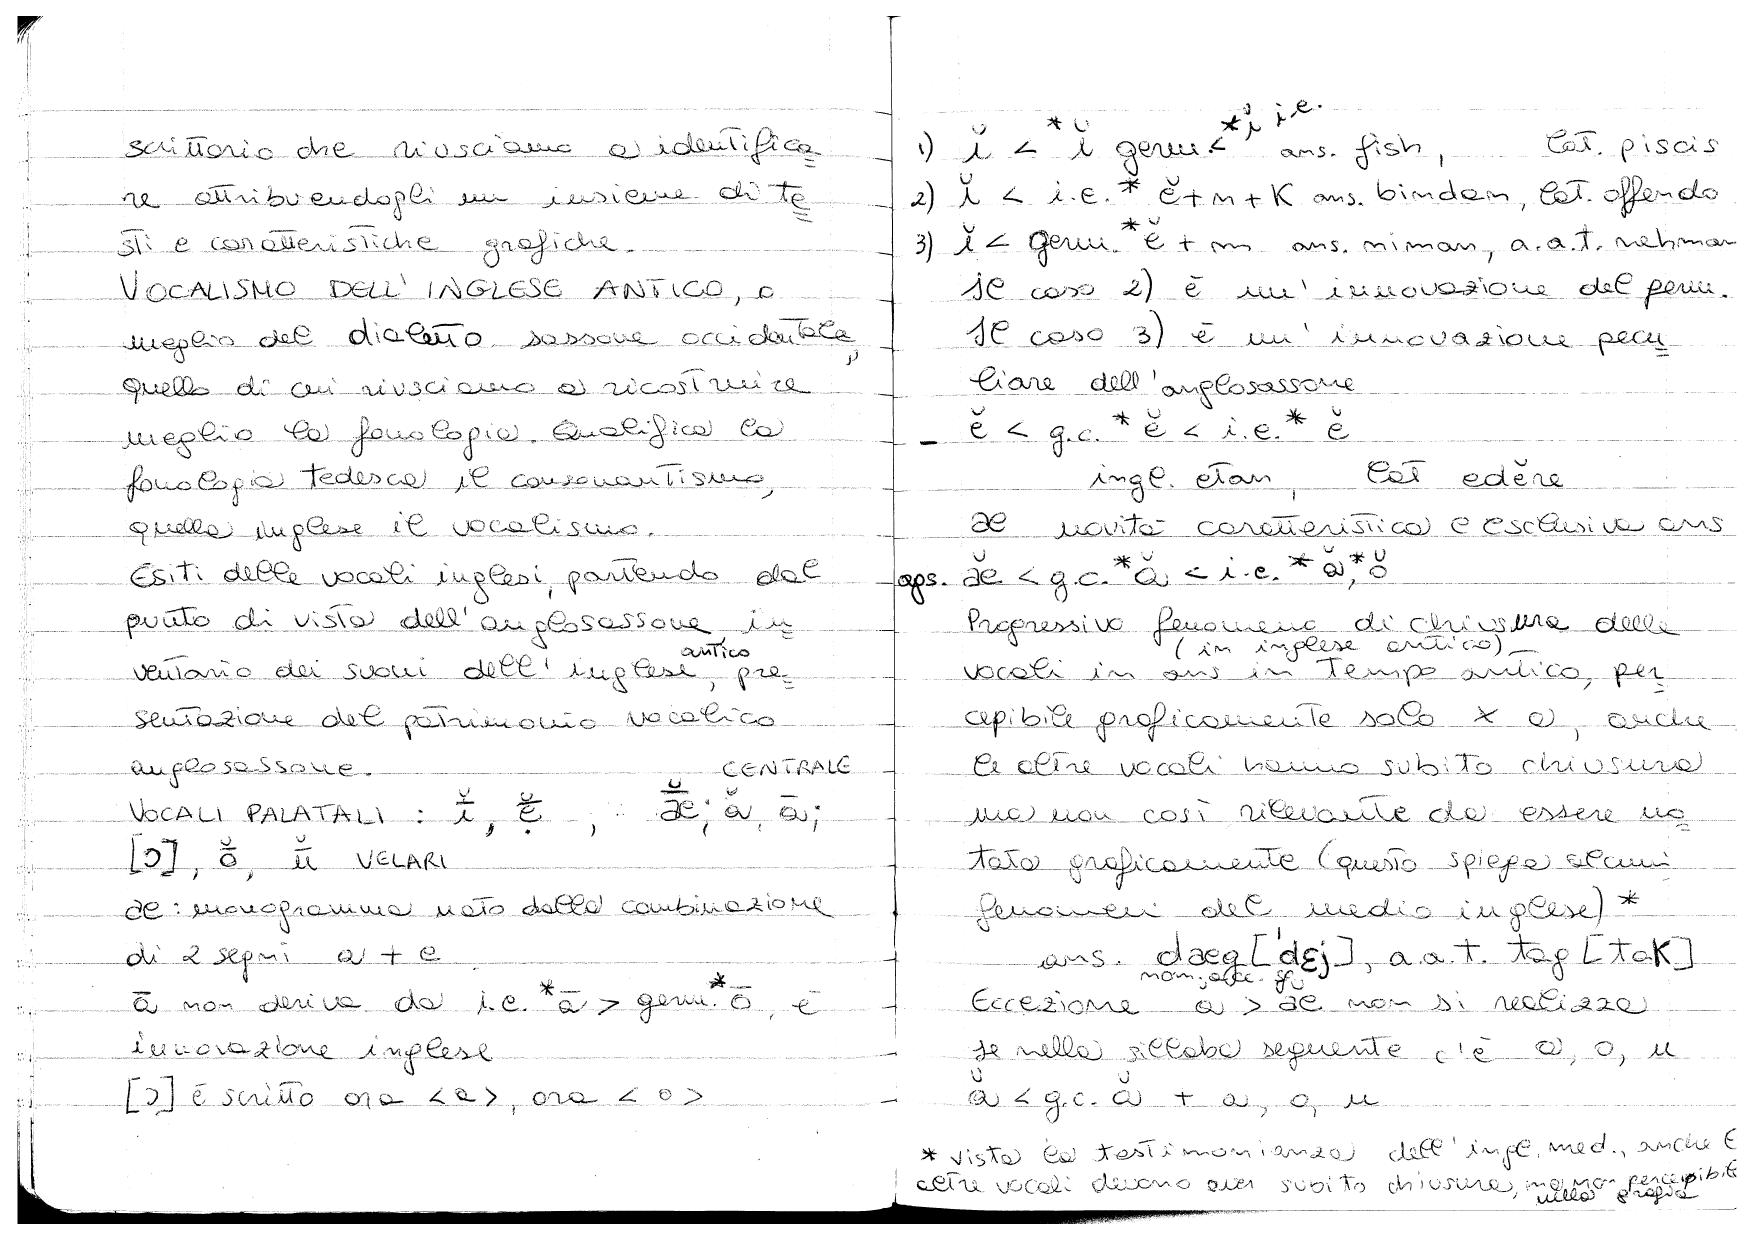 scrittorio che riusciamo a identifica=
re attribuendogli un insieme di te=
sti e caratteristiche grafiche.
VOCALISMO DELL'INGLESE ANTICO, o
meglio del dialetto sassone occidentale,
quello di cui riusciamo a ricostruire
meglio la fonologia. Qualifica la
fonologia tedesca il consonantismo,
quella inglese il vocalismo.
Esiti delle vocali inglesi, partendo dal
punto di vista dell'anglosassone in
ventario dei suoni dell'inglese antico, pre=
sentazione del patrimonio vocalico
anglosassone. CENTRALE
VOCALI PALATALI : ī̆, ē̆, ǣ̆; ă, ā;
[ɔ], ō̆, ū̆ VELARI
æ: monogramma nato dalla combinazione
di 2 segni a + e
ā non deriva da i.e. *ā > germ. *ō, è
innovazione inglese
[ɔ] è scritto ora <a>, ora <o>
1) ĭ < *ĭ germ. < *ĭ i.e. ans. fish, lat. piscis
2) ĭ < i.e. *ĕ+n+K ans. bindan, lat. offendo
3) ĭ < germ. *ĕ + m ans. niman, a.a.t. nehman
Il caso 2) è un'innovazione del germ.
Il caso 3) è un'innovazione pecu=
liare dell'anglosassone
- ĕ < g.c. *ĕ < i.e. *ĕ
ingl. etan, lat edĕre
æ novità caratteristica e esclusiva ans
ags. æ̆ < g.c. *ă < i.e. *ă, *ŏ
Progressivo fenomeno di chiusura delle
vocali in ans in tempo antico, (in inglese antico) per=
cepibile graficamente solo x a, anche
le altre vocali hanno subito chiusura
ma non così rilevante da essere no=
tata graficamente (questo spiega alcuni
fenomeni del medio inglese) *
ans. daeg ['dɛj], a.a.t. tag [taK]
nom., acc. sg.
Eccezione a > æ non si realizza
se nella sillaba seguente c'è a, o, u
ă < g.c. ă + a, o, u
* vista la testimonianza dell'ingl. med., anche le
altre vocali devono aver subito chiusura, ma non percepibile
nella grafia